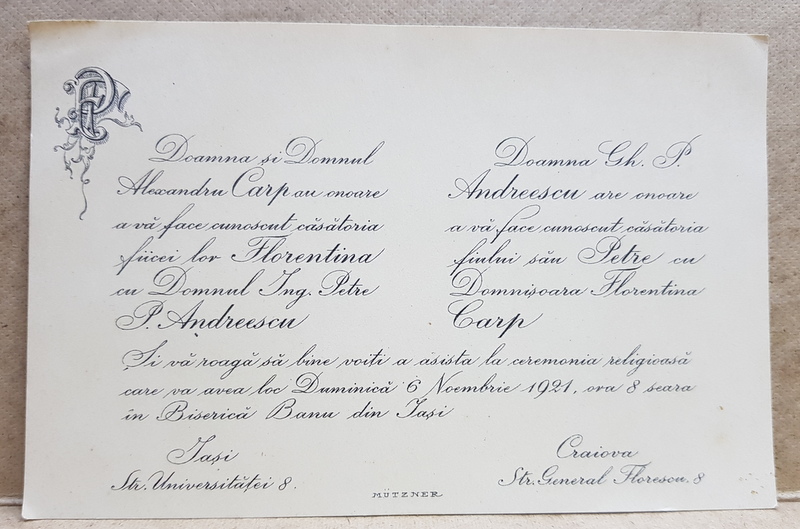 Doamna și Domnul
Alexandru Carp au onoare
a vă face cunoscut căsătoria
fiicei lor Florentina
cu Domnul Ing. Petre
P. Andreescu
Doamna Gh. P.
Andreescu are onoare
a vă face cunoscut căsătoria
fiului său Petre cu
Domnișoara Florentina
Carp
Și vă roagă să bine voiți a asista la ceremonia religioasă
care va avea loc Duminică 6 Noembrie 1921, ora 8 seara
în Biserică Banu din Iași
Iași
Str. Universităței 8.
Craiova
Str. General Florescu. 8
MÜTZNER.